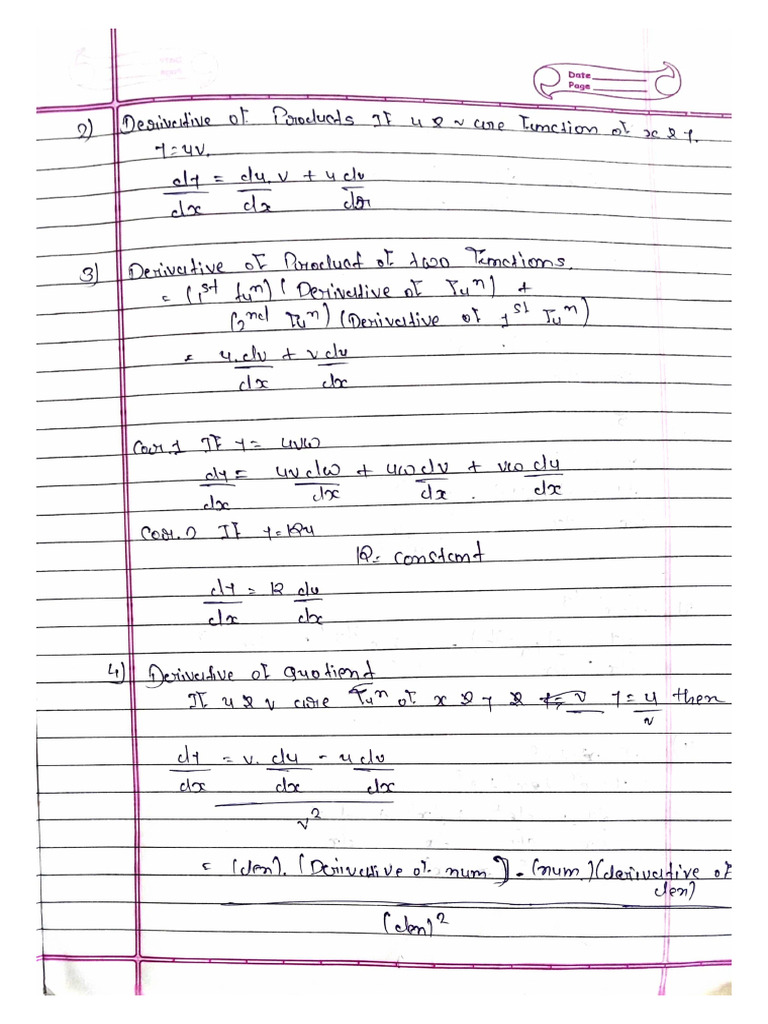 Date
Page
2) Derivative of Products If u & v are function of x & y.
y = uv.
dy/dx = du/dx . v + u dv/dx
3) Derivative of Product of two Functions.
= (1st fun) (Derivative of Fun) +
(2nd Fun) (Derivative of 1st Fun)
= u. dv/dx + v du/dx
Cor.1 If y = uvw
dy/dx = uv dw/dx + uw dv/dx + vw du/dx
Cor.2 If y = Ku
K = constant
dy/dx = K du/dx
4) Derivative of quotient
If u & v are Fun of x & y & y = u/v then
dy/dx = v. du/dx - u dv/dx
v²
= (den). (Derivative of num) - (num) (derivative of
den)
(den)²